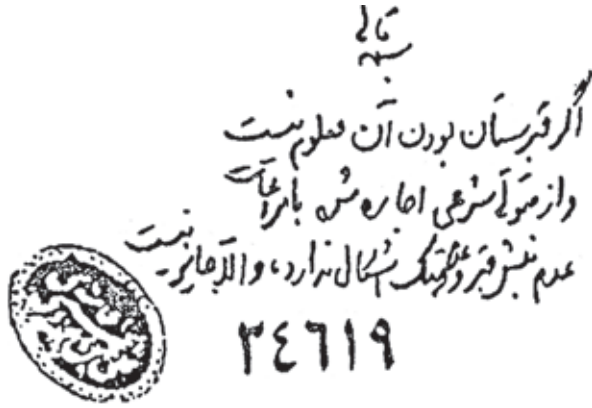 تعالی
اگر قبرستان بودن آن معلوم نیست
و از متولی شرعی اجاره شد با مراعات
عدم نبش قبر و عدم هتک اشکال ندارد، و الا جایز نیست
۳٤٦۱۹